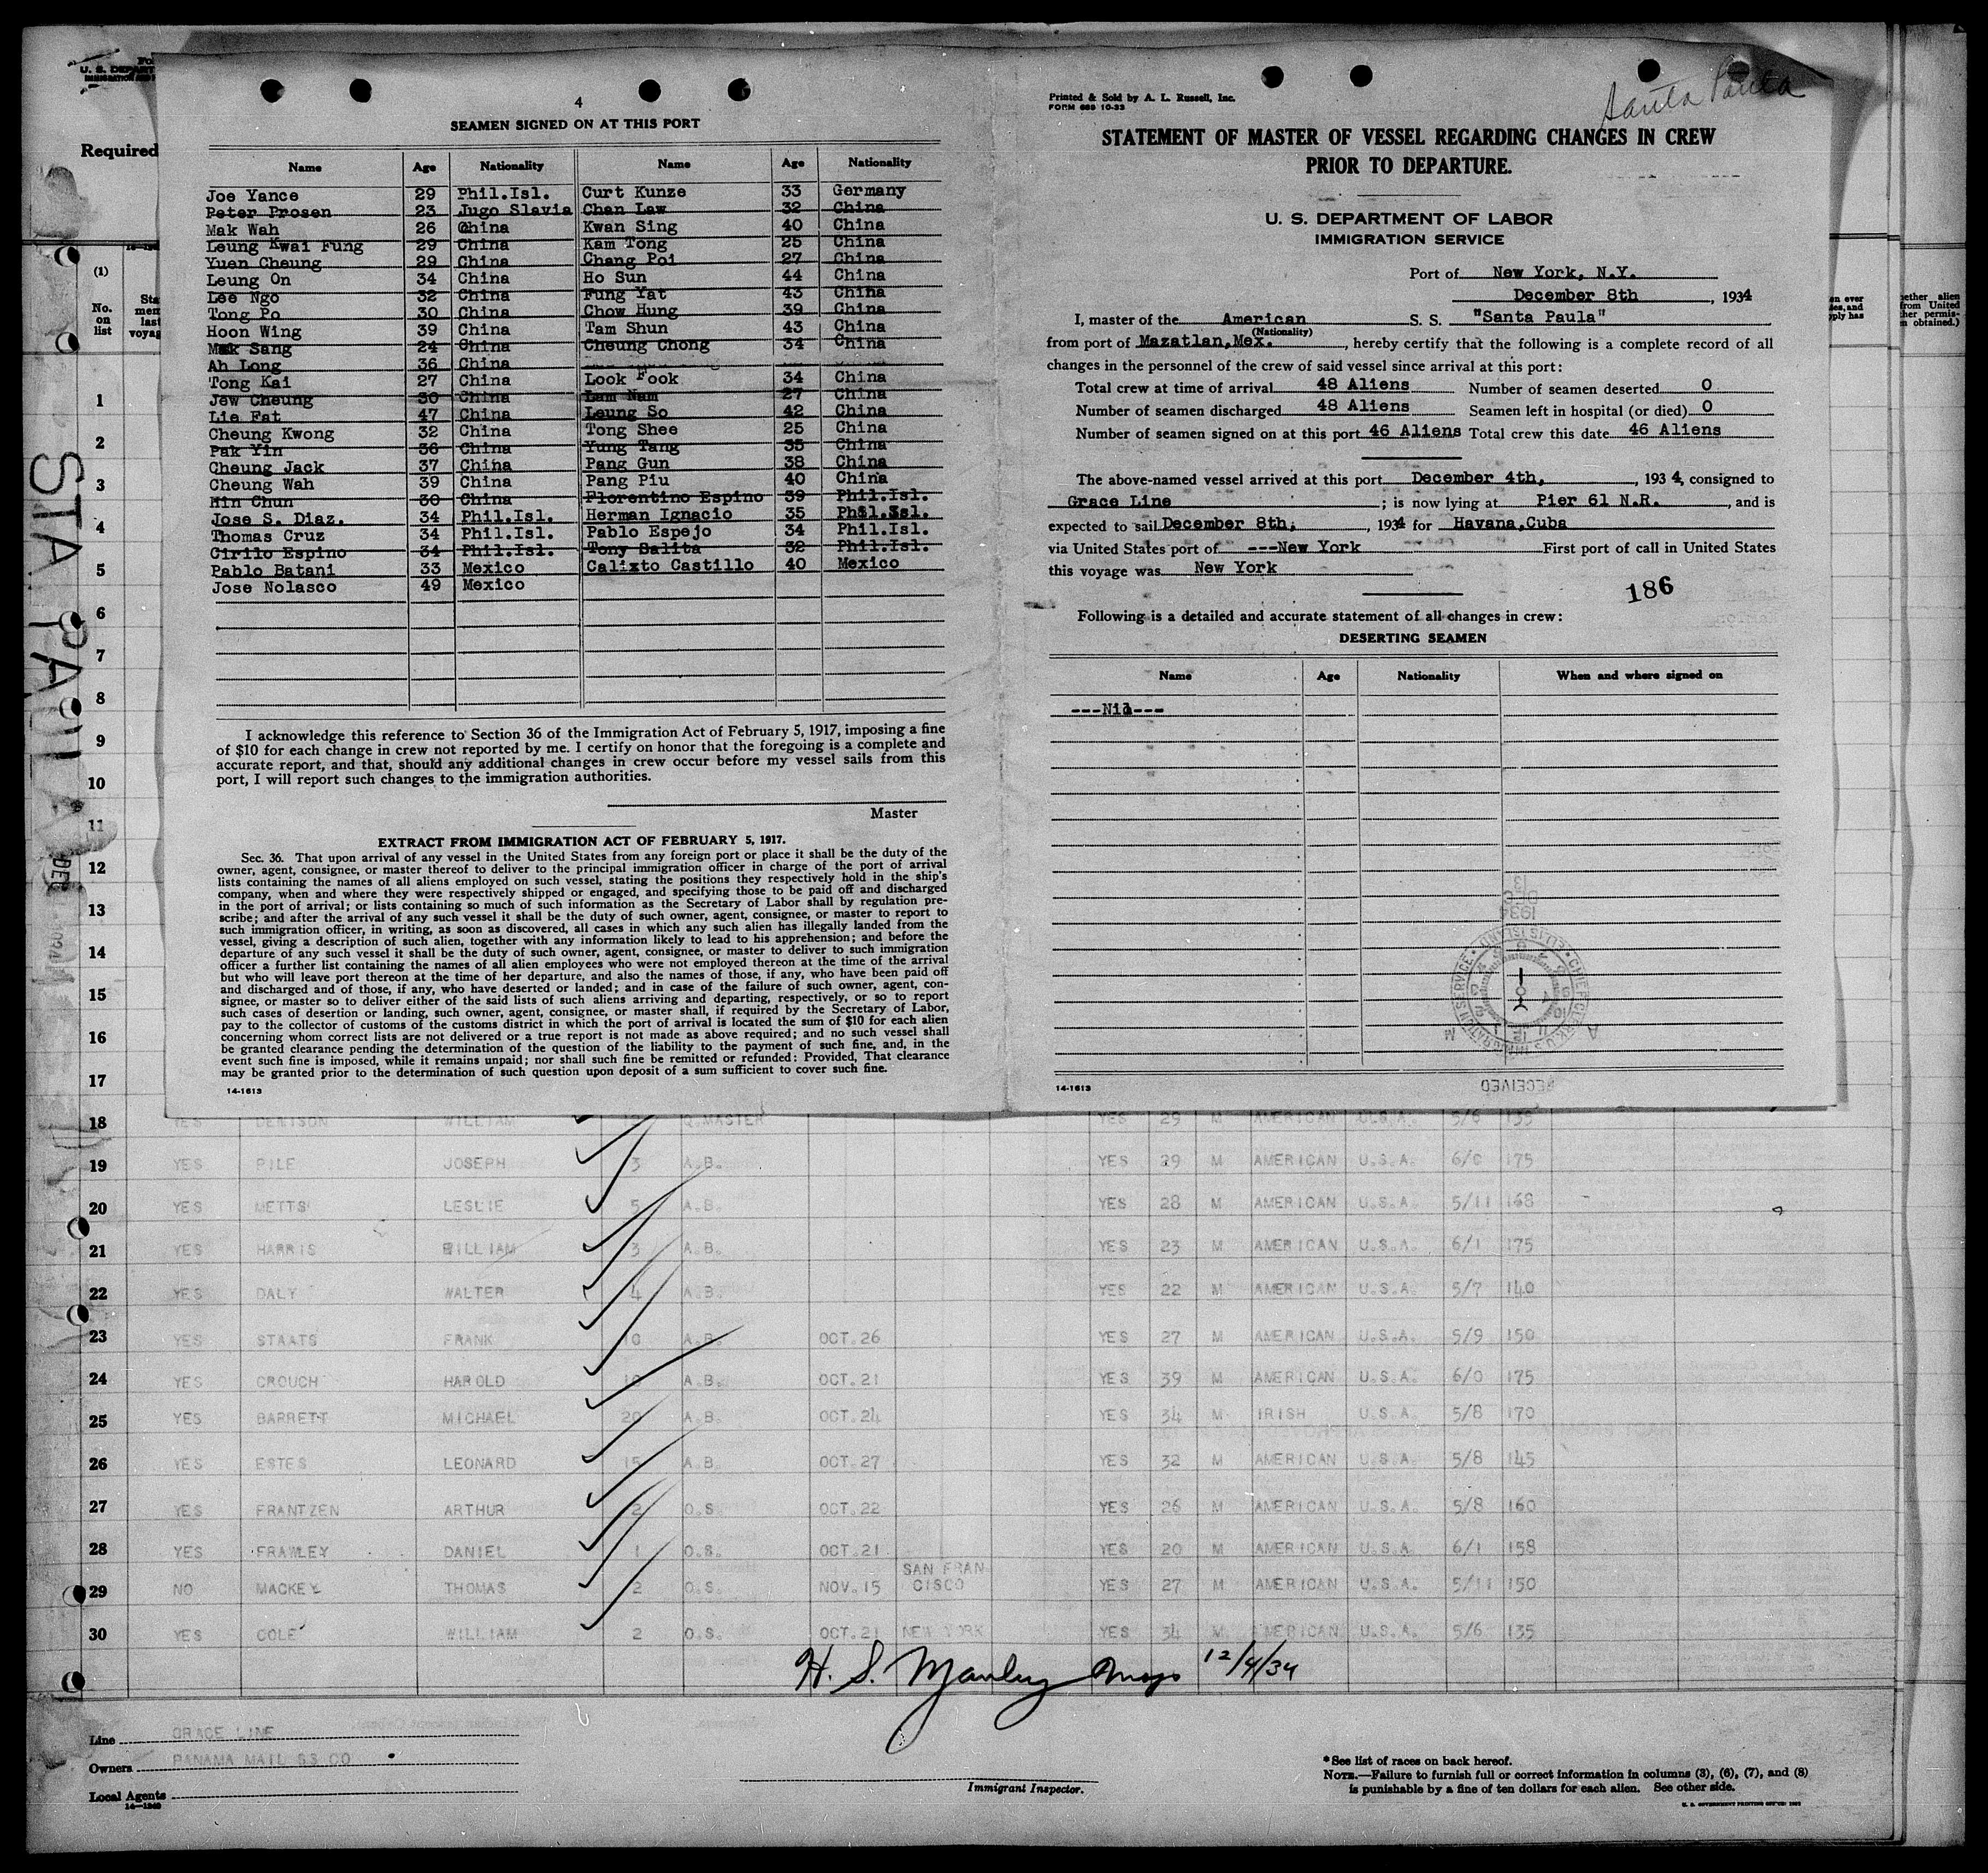 4
SEAMEN SIGNED ON AT THIS PORT
Name Age Nationality Name Age Nationality
Joe Yance 29 Phil.Isl. Curt Kunze 33 Germany
Peter Prosen 23 Jugo Slavia Chan Law 32 China
Mak Wah 26 China Kwan Sing 40 China
Leung Kwai Fung 29 China Kam Tong 25 China
Yuen Cheung 29 China Chang Poi 27 China
Leung On 34 China Ho Sun 44 China
Lee Ngo 32 China Fung Yat 43 China
Tong Po 30 China Chow Hung 39 China
Hoon Wing 39 China Tam Shun 43 China
Mak Sang 24 China Cheung Chong 34 China
Ah Long 36 China
Tong Kai 27 China Look Fook 34 China
Jew Cheung 30 China Lam Nam 27 China
Lie Fat 47 China Leung So 42 China
Cheung Kwong 32 China Tong Shee 25 China
Pak Yin 36 China Yung Tang 35 China
Cheung Jack 37 China Pang Gun 38 China
Cheung Wah 39 China Pang Piu 40 China
Min Chun 30 China Florentino Espino 39 Phil.Isl.
Jose S. Diaz. 34 Phil.Isl. Herman Ignacio 35 Phil.Isl.
Thomas Cruz 34 Phil.Isl. Pablo Espejo 34 Phil.Isl.
Cirilo Espino 34 Phil.Isl. Tony Salita 32 Phil.Isl.
Pablo Batani 33 Mexico Calixto Castillo 40 Mexico
Jose Nolasco 49 Mexico
I acknowledge this reference to Section 36 of the Immigration Act of February 5, 1917, imposing a fine
of $10 for each change in crew not reported by me. I certify on honor that the foregoing is a complete and
accurate report, and that, should any additional changes in crew occur before my vessel sails from this
port, I will report such changes to the immigration authorities.
Master
EXTRACT FROM IMMIGRATION ACT OF FEBRUARY 5, 1917.
Sec. 36. That upon arrival of any vessel in the United States from any foreign port or place it shall be the duty of the
owner, agent, consignee, or master thereof to deliver to the principal immigration officer in charge of the port of arrival
lists containing the names of all aliens employed on such vessel, stating the positions they respectively hold in the ship's
company, when and where they were respectively shipped or engaged, and specifying those to be paid off and discharged
in the port of arrival; or lists containing so much of such information as the Secretary of Labor shall by regulation pre-
scribe; and after the arrival of any such vessel it shall be the duty of such owner, agent, consignee, or master to report to
such immigration officer, in writing, as soon as discovered, all cases in which any such alien has illegally landed from the
vessel, giving a description of such alien, together with any information likely to lead to his apprehension; and before the
departure of any such vessel it shall be the duty of such owner, agent, consignee, or master to deliver to such immigration
officer a further list containing the names of all alien employees who were not employed thereon at the time of the arrival
but who will leave port thereon at the time of her departure, and also the names of those, if any, who have been paid off
and discharged and of those, if any, who have deserted or landed; and in case of the failure of such owner, agent, con-
signee, or master so to deliver either of the said lists of such aliens arriving and departing, respectively, or so to report
such cases of desertion or landing, such owner, agent, consignee, or master shall, if required by the Secretary of Labor,
pay to the collector of customs of the customs district in which the port of arrival is located the sum of $10 for each alien
concerning whom correct lists are not delivered or a true report is not made as above required; and no such vessel shall
be granted clearance pending the determination of the question of the liability to the payment of such fine, and, in the
event such fine is imposed, while it remains unpaid; nor shall such fine be remitted or refunded: Provided, That clearance
may be granted prior to the determination of such question upon deposit of a sum sufficient to cover such fine.
14-1613
Santa Paula
Printed & Sold by A. L. Russell, Inc.
FORM 689 10-33
STATEMENT OF MASTER OF VESSEL REGARDING CHANGES IN CREW
PRIOR TO DEPARTURE.
U. S. DEPARTMENT OF LABOR
IMMIGRATION SERVICE
Port of New York, N.Y.
December 8th, 1934
I, master of the American S. S. "Santa Paula"
(Nationality)
from port of Mazatlan,Mex., hereby certify that the following is a complete record of all
changes in the personnel of the crew of said vessel since arrival at this port:
Total crew at time of arrival 48 Aliens Number of seamen deserted 0
Number of seamen discharged 48 Aliens Seamen left in hospital (or died) 0
Number of seamen signed on at this port 46 Aliens Total crew this date 46 Aliens
The above-named vessel arrived at this port December 4th, 1934, consigned to
Grace Line; is now lying at Pier 61 N.R., and is
expected to sail December 8th, 1934 for Havana,Cuba
via United States port of ---New York First port of call in United States
this voyage was New York
186
Following is a detailed and accurate statement of all changes in crew:
DESERTING SEAMEN
Name Age Nationality When and where signed on
---Nil---
14-1613
RECEIVED
Required
(1)
No. on list
STA PAULA
1
2
3
4
5
6
7
8
9
10
11
12
13
14
15
16
17
18 YES DENISON WILLIAM Q.MASTER YES 29 M AMERICAN U.S.A. 5/6 135
19 YES PILE JOSEPH 3 A.B. YES 39 M AMERICAN U.S.A. 6/0 175
20 YES METTS LESLIE 5 A.B. YES 28 M AMERICAN U.S.A. 5/11 168
21 YES HARRIS WILLIAM 3 A.B. YES 23 M AMERICAN U.S.A. 6/1 175
22 YES DALY WALTER 4 A.B. YES 22 M AMERICAN U.S.A. 5/7 140
23 YES STAATS FRANK 10 A.B. OCT.26 YES 27 M AMERICAN U.S.A. 5/9 150
24 YES CROUCH HAROLD A.B. OCT.21 YES 39 M AMERICAN U.S.A. 6/0 175
25 YES BARRETT MICHAEL 20 A.B. OCT.24 YES 34 M IRISH U.S.A. 5/8 170
26 YES ESTES LEONARD 15 A.B. OCT.27 YES 32 M AMERICAN U.S.A. 5/8 145
27 YES FRANTZEN ARTHUR 2 O.S. OCT.22 YES 26 M AMERICAN U.S.A. 5/8 160
28 YES FRAWLEY DANIEL 1 O.S. OCT.21 YES 20 M AMERICAN U.S.A. 6/1 158
29 NO MACKEY THOMAS 2 O.S. NOV.15 SAN FRAN CISCO YES 27 M AMERICAN U.S.A. 5/11 150
30 YES COLE WILLIAM 2 O.S. OCT.21 NEW YORK YES 34 M AMERICAN U.S.A. 5/6 135
H. S. Manley 12/4/34
Line GRACE LINE
Owners PANAMA MAIL SS CO
Local Agents
Immigrant Inspector.
*See list of races on back hereof.
NOTE.—Failure to furnish full or correct information in columns (3), (6), (7), and (8)
is punishable by a fine of ten dollars for each alien. See other side.